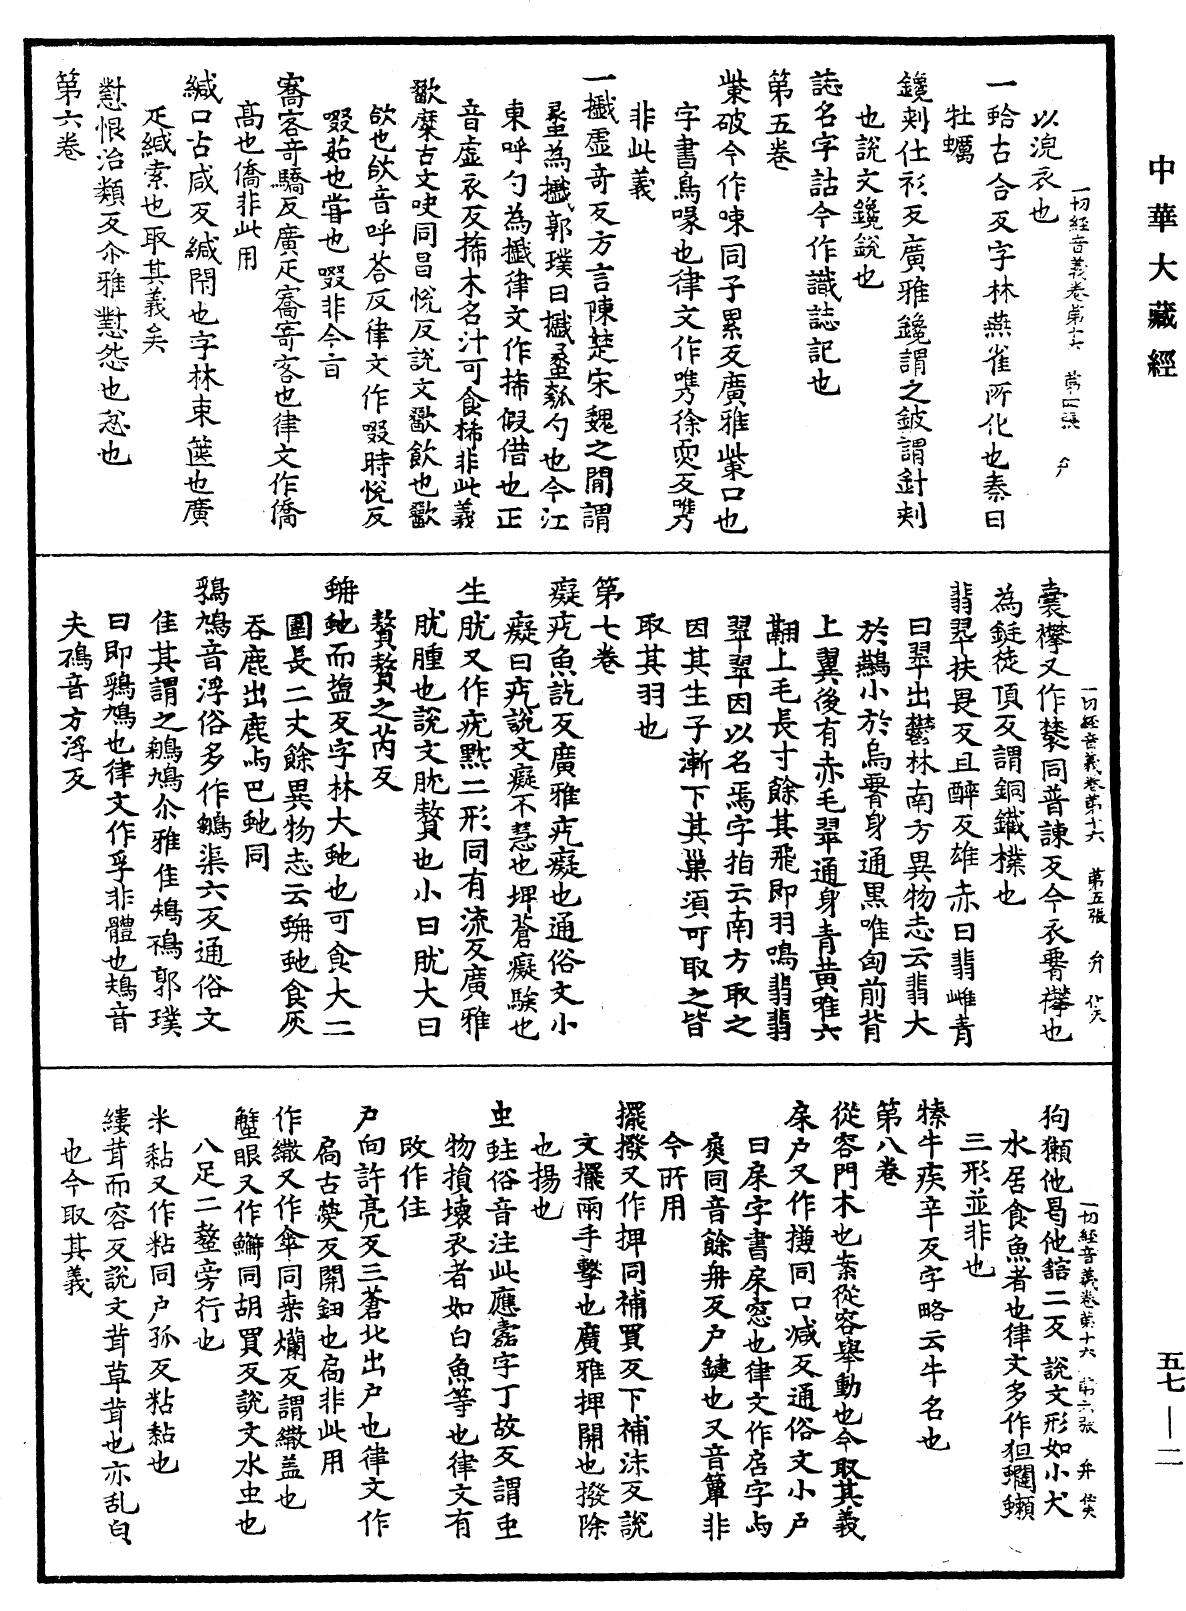 中華大藏經
五七—二
一切經音義卷第十六　第四張　弁
以浣衣也
一蛤古合反字林燕雀所化也秦曰
牡蠣
鑱刾仕衫反廣雅鑱謂之鈹謂針刾
也說文鑱銳也
誌名字詁今作識誌記也
第五卷
紫破今作㖒同子累反廣雅紫口也
字書鳥喙也律文作㗱徐奕反㗱
非此義
一㰕虛奇反方言陳楚宋魏之間謂
蠡為㰕郭璞曰㰕蠡瓠勺也今江
東呼勺為㰕律文作㭊假借也正
音虛衣反㭊木名汁可食㭊非此義
歠糜古文吷同昌悅反說文歠飲也歠
欱也欱音呼荅反律文作啜時悅反
啜茹也甞也啜非今音
㝯客奇驕反廣疋㝯寄客也律文作僑
高也僑非此用
緘口古咸反緘閇也字林束篋也廣
疋緘索也取其義矣
懟恨治類反尒雅懟怨也忿也
第六卷
一切經音義卷第十六　第五張　弁
囊襻又作㡪同普諫反今衣要襻也
為鋌徒頂反謂銅鐵樸也
翡翠扶畏反且醉反雄赤曰翡雌青
曰翠出欝林南方異物志云翡大
於鷰小於烏要身通黑唯匈前背
上翼後有赤毛翠通身青黃雅六
翮上毛長寸餘其飛即羽鳴翡翡
翠翠因以名焉字指云南方取之
因其生子漸下其巢須可取之皆
取其羽也
第七卷
癡疙魚訖反廣雅疙癡也通俗文小
癡曰疙說文癡不慧也埤蒼癡騃也
生肬又作疣㸵二形同有流反廣雅
肬腫也說文肬贅也小曰肬大曰
贅贅之芮反
蚺虵而塩反字林大虵也可食大二
圍長二丈餘異物志云蚺虵食灰
吞鹿出鹿与巴虵同
鵓鳩音浮俗多作鶵渠六反通俗文
隹其謂之鵓鳩尒雅隹鴀䳕郭璞
曰即鵓鳩也律文作孚非體也鴀音
夫䳕音方浮反
一切經音義卷第十六　第六張　弁
狗獺他曷他鎋二反說文形如小犬
水居食魚者也律文多作狚䦨鱜
三形並非也
㹍牛疾辛反字略云牛名也
第八卷
從容門木也案從容舉動也今取其義
㦿戶又作㩜同口減反通俗文小戶
曰㦿字書㦿窓也律文作店字与
㷸同音餘冉反戶鍵也又音簟非
今所用
擺撥又作捭同補買反下補沫反說
文擺兩手擊也廣雅捭開也撥除
也揚也
虫蛀俗音注此應蠧字丁故反謂虫
物損壞衣者如白魚等也律文有
改作住
戶向許亮反三蒼北出戶也律文作
扃古熒反開鈕也扃非此用
作繖又作傘同桒爛反謂繖盖也
蟹眼又作䲒同胡買反說文水虫也
八足二螯旁行也
米黏又作粘同户孤反粘黏也
縷茸而容反說文茸草茸也亦乱皃
也今取其義